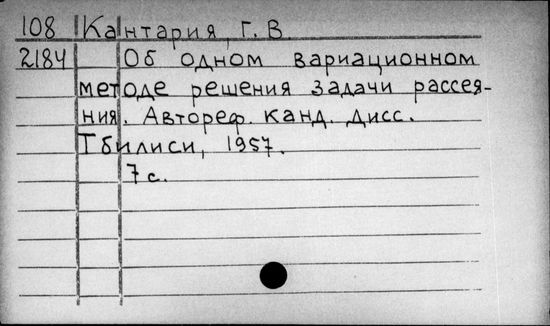 108 Кантария, Г. В
2184 Об одном вариационном
методе решения задачи рассея-
ния. Автореф. канд. дисс.
Тбилиси, 1957.
7 с.